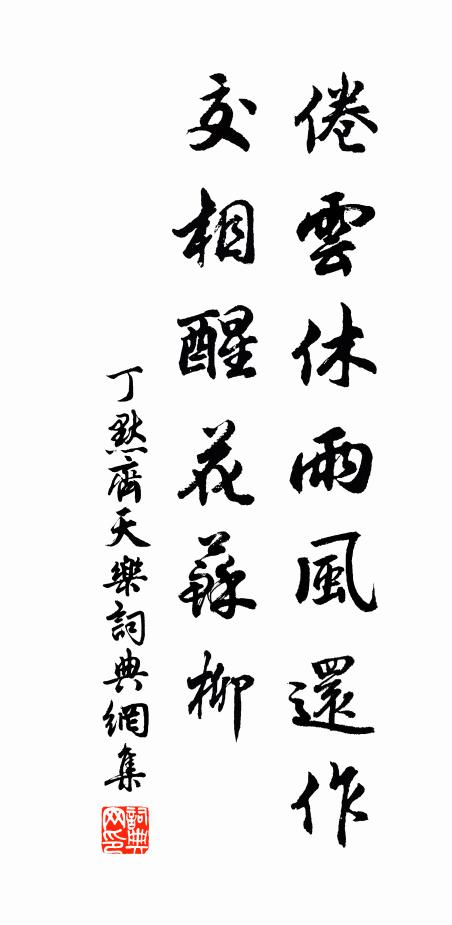 倦雲休雨風還作
交相醒花蘇柳
丁默齊天樂詞典網集
詞典網印